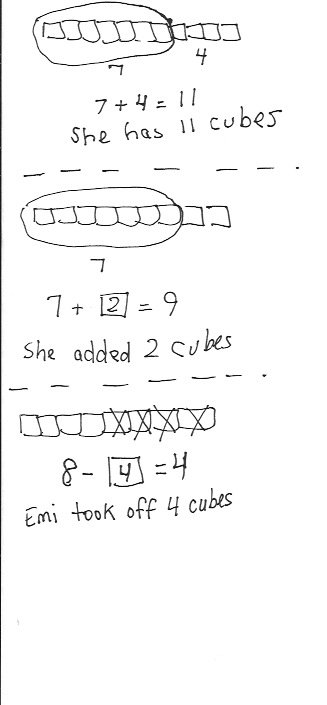 7 4
7 + 4 = 11
She has 11 cubes
7
7 + 2 = 9
She added 2 cubes
8 - 4 = 4
Emi took off 4 cubes